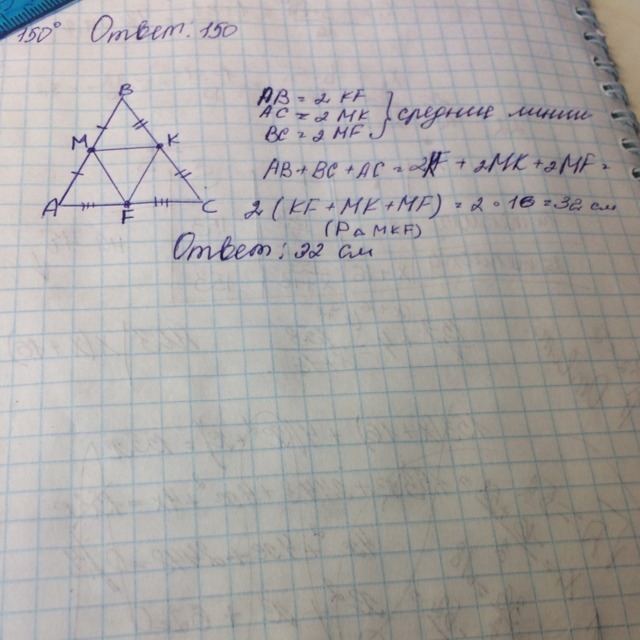 150° Ответ. 150
B
M K
A F C
AB = 2 KF
AC = 2 MK } средние линии
BC = 2 MF
AB + BC + AC = 2KF + 2MK + 2MF =
2 (KF + MK + MF) = 2 · 16 = 32 см
(P △ MKF)
Ответ: 32 см